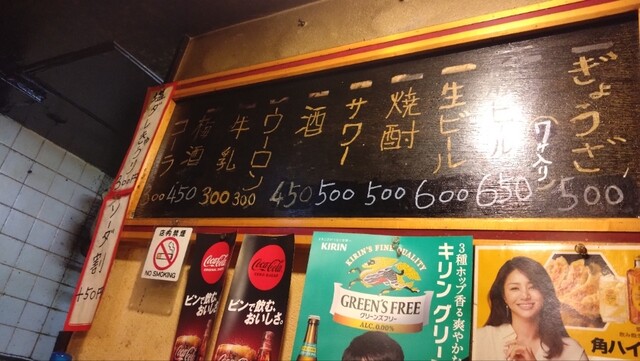 ぎょうざ
(7ケ入り)
500
ビール
650
生ビール
600
焼酎
500
サワー
500
酒
450
ウーロン
300
牛乳
300
梅酒
450
コーラ
300
300円
ソーダ割
+50円
店内禁煙
NO SMOKING
Coca-Cola
ビンで飲む、
おいしさ。
Coca-Cola
ビンで飲む、
おいしさ。
KIRIN
KIRIN'S FINE QUALITY
GREEN'S FREE
グリーンズフリー
ALC. 0.00%
3種ホップ香る爽やかな
キリン グリー
角ハイ